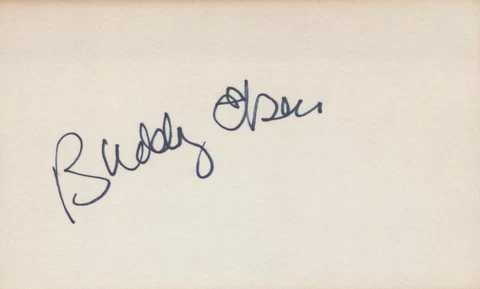 Buddy Ebsen